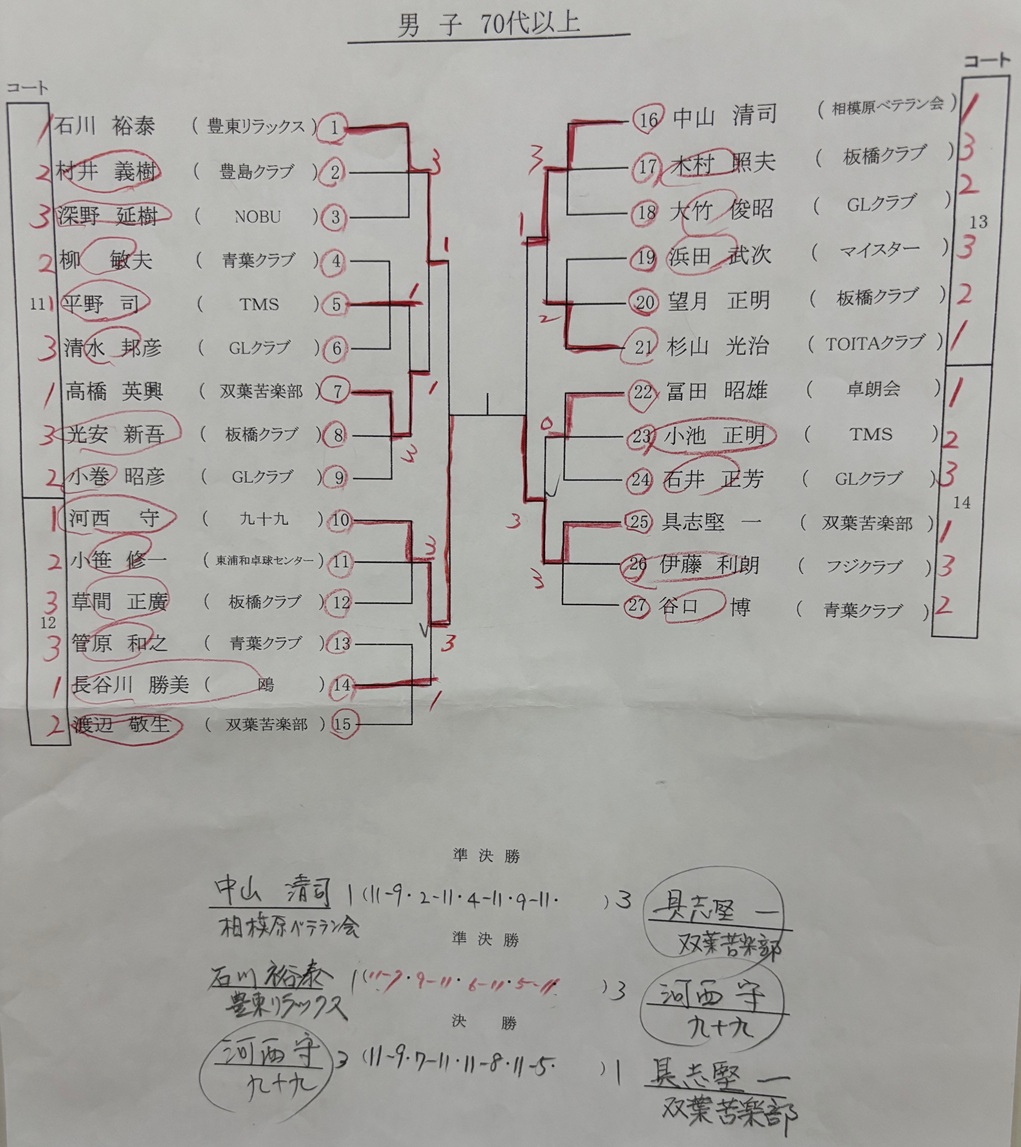 男 子 70代以上
コート
1 石川 裕泰 ( 豊東リラックス ) 1
2 村井 義樹 ( 豊島クラブ ) 2
3 深野 延樹 ( NOBU ) 3
2 柳 敏夫 ( 青葉クラブ ) 4
11 1 平野 司 ( TMS ) 5
3 清水 邦彦 ( GLクラブ ) 6
1 高橋 英興 ( 双葉苦楽部 ) 7
3 光安 新吾 ( 板橋クラブ ) 8
2 小巻 昭彦 ( GLクラブ ) 9
1 河西 守 ( 九十九 ) 10
2 小笹 修一 ( 東浦和卓球センター ) 11
3 草間 正廣 ( 板橋クラブ ) 12
12
3 管原 和之 ( 青葉クラブ ) 13
1 長谷川 勝美 ( 鴎 ) 14
2 渡辺 敬生 ( 双葉苦楽部 ) 15
3
1
1
1
3
3
3
1
コート
16 中山 清司 ( 相模原ベテラン会 ) 1
17 木村 照夫 ( 板橋クラブ ) 3
18 大竹 俊昭 ( GLクラブ ) 2
13
19 浜田 武次 ( マイスター ) 3
20 望月 正明 ( 板橋クラブ ) 2
21 杉山 光治 ( TOITAクラブ ) 1
22 冨田 昭雄 ( 卓朗会 ) 1
23 小池 正明 ( TMS ) 2
24 石井 正芳 ( GLクラブ ) 3
14
25 具志堅 一 ( 双葉苦楽部 ) 1
26 伊藤 利朗 ( フジクラブ ) 3
27 谷口 博 ( 青葉クラブ ) 2
3
1
2
0
3
3
準 決 勝
中山 清司 1 (11-9・2-11・4-11・9-11・ ) 3 具志堅 一
相模原ベテラン会 双葉苦楽部
準 決 勝
石川裕泰 1 (11-7・9-11・6-11・5-11・ ) 3 河西 守
豊東リラックス 九十九
決 勝
河西 守 3 (11-9・7-11・11-8・11-5・ ) 1 具志堅 一
九十九 双葉苦楽部